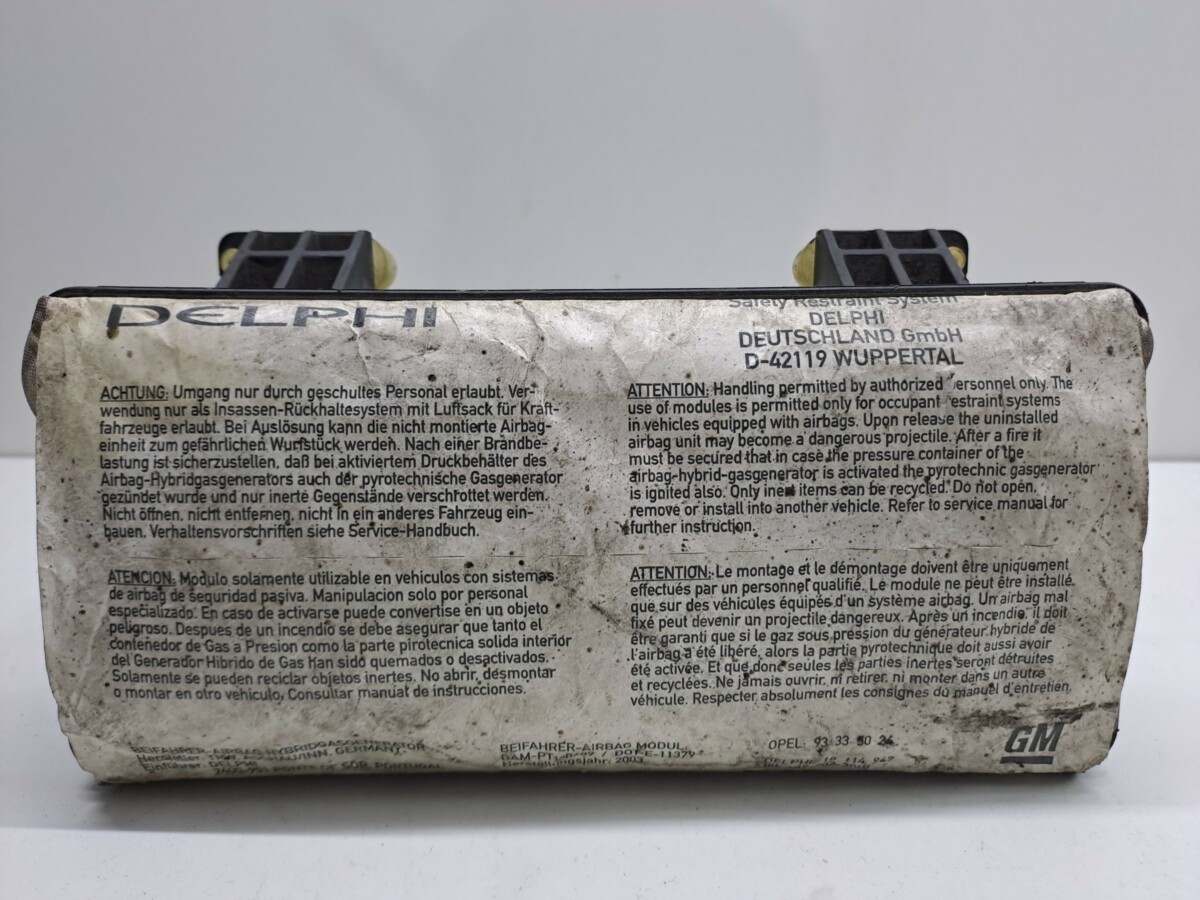 DELPHI
Safety Restraint System
DELPHI
DEUTSCHLAND GmbH
D-42119 WUPPERTAL
ACHTUNG: Umgang nur durch geschultes Personal erlaubt. Ver-
wendung nur als Insassen-Rückhaltesystem mit Luftsack für Kraft-
fahrzeuge erlaubt. Bei Auslösung kann die nicht montierte Airbag-
einheit zum gefährlichen Wurfstück werden. Nach einer Brandbe-
lastung ist sicherzustellen, daß bei aktiviertem Druckbehälter des
Airbag-Hybridgasgenerators auch der pyrotechnische Gasgenerator
gezündet wurde und nur inerte Gegenstände verschrottet werden.
Nicht öffnen, nicht entfernen, nicht in ein anderes Fahrzeug ein-
bauen. Verhaltensvorschriften siehe Service-Handbuch.
ATTENTION: Handling permitted by authorized ersonnel only. The
use of modules is permitted only for occupant estraint systems
in vehicles equipped with airbags. Upon release the uninstalled
airbag unit may become a dangerous projectile. After a fire it
must be secured that in case the pressure container of the
airbag-hybrid-gasgenerator is activated the pyrotechnic gasgenerator
is ignited also. Only inert items can be recycled. Do not open,
remove or install into another vehicle. Refer to service manual for
further instruction.
ATENCION: Modulo solamente utilizable en vehiculos con sistemas
de airbag de seguridad pasiva. Manipulacion solo por personal
especializado. En caso de activarse puede convertise en un objeto
peligroso. Despues de un incendio se debe asegurar que tanto el
contenedor de Gas a Presion como la parte pirotecnica solida interior
del Generador Hibrido de Gas Han sido quemados o desactivados.
Solamente se pueden reciclar objetos inertes. No abrir, desmontar
o montar en otro vehiculo, Consultar manual de instrucciones.
ATTENTION: Le montage et le démontage doivent être uniquement
effectués par un personnel qualifié. Le module ne peut être installé
que sur des véhicules équipés d'un système airbag. Un airbag mal
fixé peut devenir un projectile dangereux. Après un incendie, il doit
être garanti que si le gaz sous pression du générateur hybride de
l'airbag a été libéré, alors la partie pyrotechnique doit aussi avoir
été activée. Et que donc seules les parties inertes seront détruites
et recyclées. Ne jamais ouvrir, ni retirer, ni monter dans un autre
véhicule. Respecter absolument les consignes du manuel d'entretien.
BEIFAHRER-AIRBAG HYBRIDGASGENERATOR
Hersteller: TRW ASCHAU/INN, GERMANY
Einführer: DELPHI
PONTE DE SOR, PORTUGAL
BEIFAHRER-AIRBAG MODUL
BAM-PT1 / DOT-E-11379
Herstellungsjahr: 2003
OPEL: 93 33 50 24
DELPHI
GM